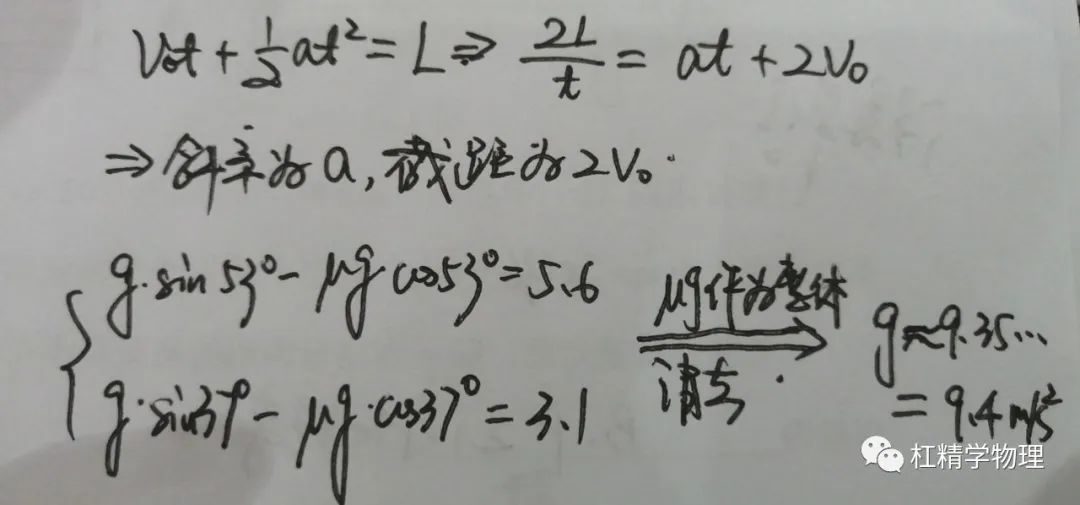 V₀t + ½at² = L ⇒ 2L/t = at + 2V₀
⇒ 斜率为a,截距为2V₀.
g·sin53° - μg cos53° = 5.6
g·sin37° - μg·cos37° = 3.1
μg作为整体
消去
g≈9.35…
= 9.4 m/s²
杠精学物理